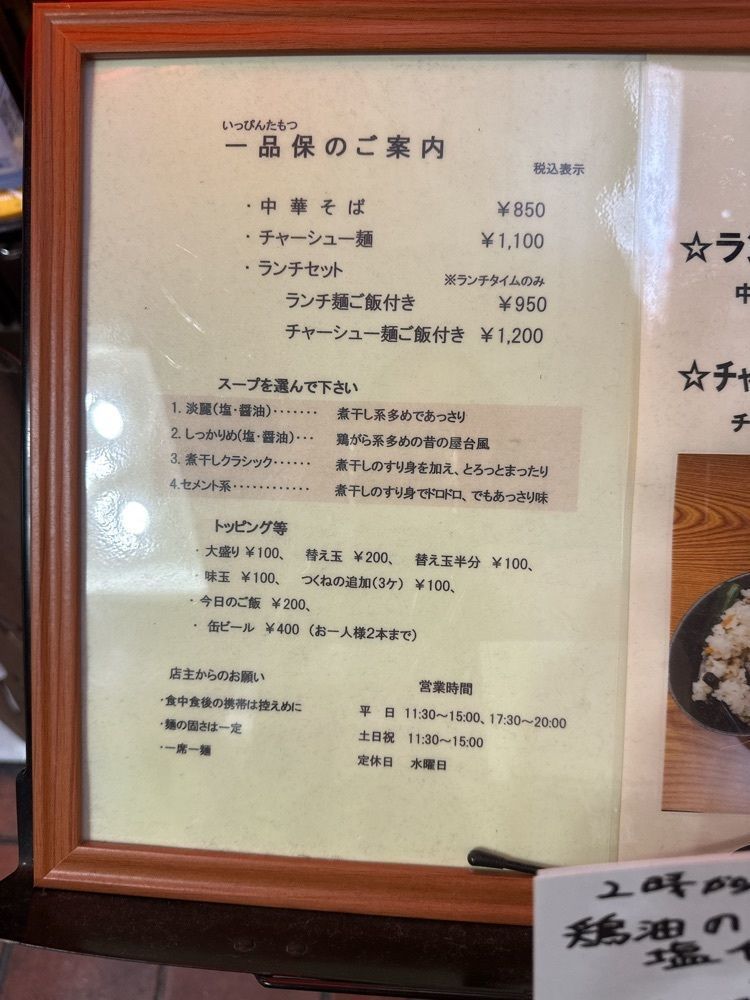 いっぴんたもつ
一品保のご案内
税込表示
・中華そば ￥850
・チャーシュー麺 ￥1,100
・ランチセット ※ランチタイムのみ
ランチ麺ご飯付き ￥950
チャーシュー麺ご飯付き ￥1,200
スープを選んで下さい
1. 淡麗(塩・醤油)・・・・・・・ 煮干し系多めであっさり
2. しっかりめ(塩・醤油)・・・ 鶏がら系多めの昔の屋台風
3. 煮干しクラシック・・・・・・ 煮干しのすり身を加え、とろっとまったり
4.セメント系・・・・・・・・・・・・ 煮干しのすり身でドロドロ、でもあっさり味
トッピング等
・大盛り ￥100、 替え玉 ￥200、 替え玉半分 ￥100、
・味玉 ￥100、 つくねの追加(3ケ) ￥100、
・今日のご飯 ￥200、
・缶ビール ￥400 (お一人様2本まで)
店主からのお願い
・食中食後の携帯は控えめに
・麺の固さは一定
・一席一麺
営業時間
平 日 11:30～15:00、17:30～20:00
土日祝 11:30～15:00
定休日 水曜日
☆ラン
中
☆チャ
チ
2時か
鶏油の
塩